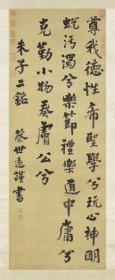 尊我德性希聖學兮玩心神明
蛻汚濁兮樂節禮樂道中庸兮
克勤小物奏膚公兮
朱子二銘 蔡世遠謹書